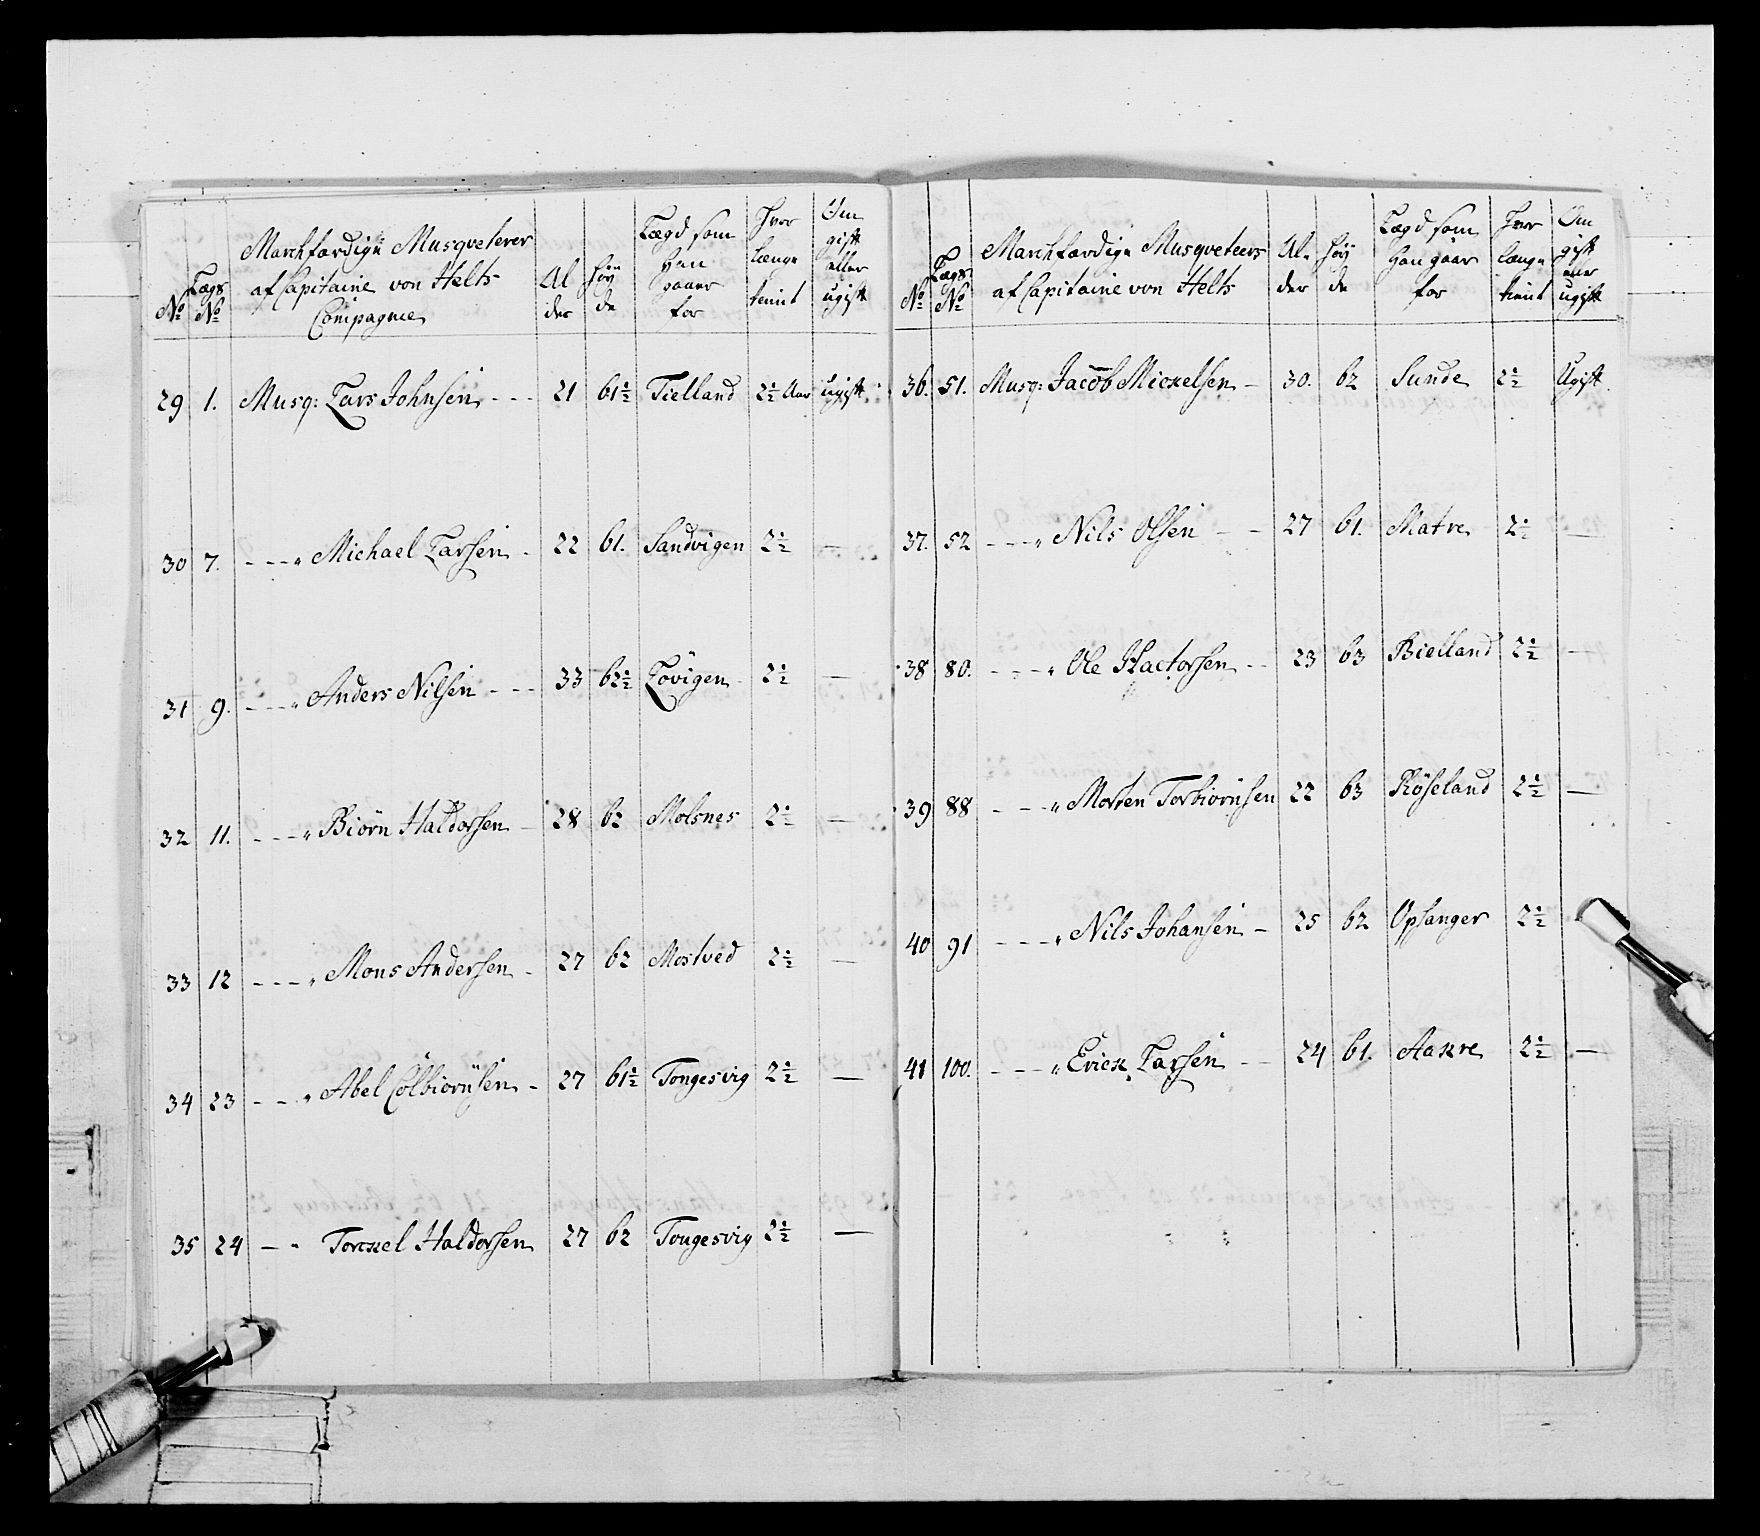 No
Lægs No
Marchfærdige Musqveterer
af Capitaine von Helts
Compagnie
Al der
Høy de
Lægd som
han
gaaer
for
Hvor
længe
tient
Om
gift
eller
ugift
29 1. Musq: Lars Johnsen - - - 21 61½ Tielland 2½ Aar ugift
30 7. - - - „ Michael Larsen - 22 61. Sandvigen 2½ —
31 9. - - - „ Anders Nilsen - - - 33 62½ Løvigen 2½ —
32 11. - - - „ Biørn Haldorsen - 28 62 Molsnes 2½ —
33 12 - - - „ Mons Andersen - 27 62 Mostved 2½ —
34 23 - - „ Abel Colbiørnsen - 27 61½ Tongesvig 2½ —
35 24 - „ Torckel Haldorsen 27 62 Tongesvig 2½ —
No
Lægs No
Marchfærdige Musqveteers
af Capitaine von Helts
Al- der
Høy de
Lægd som
han gaar
for
Hvor
længe
tient
Om
gift
eller
ugift
36. 51. Musq: Jacob Mickelsen - 30. 62 Sunde 2½ Ugift
37. 52 - - - „ Nils Olsen - - 27 61. Matre 2½ —
38 80. - - - „ Ole Hactorsen - - 23 63 Bielland 2½ —
39 88 - - - „ Morten Torbiørnsen 22 63 Røseland 2½ —
40 91 - - - „ Nils Johansen - 25 62 Opsanger 2½
41 100. - - - „ Erick Larsen - - 24 61. Aakre 2½ —